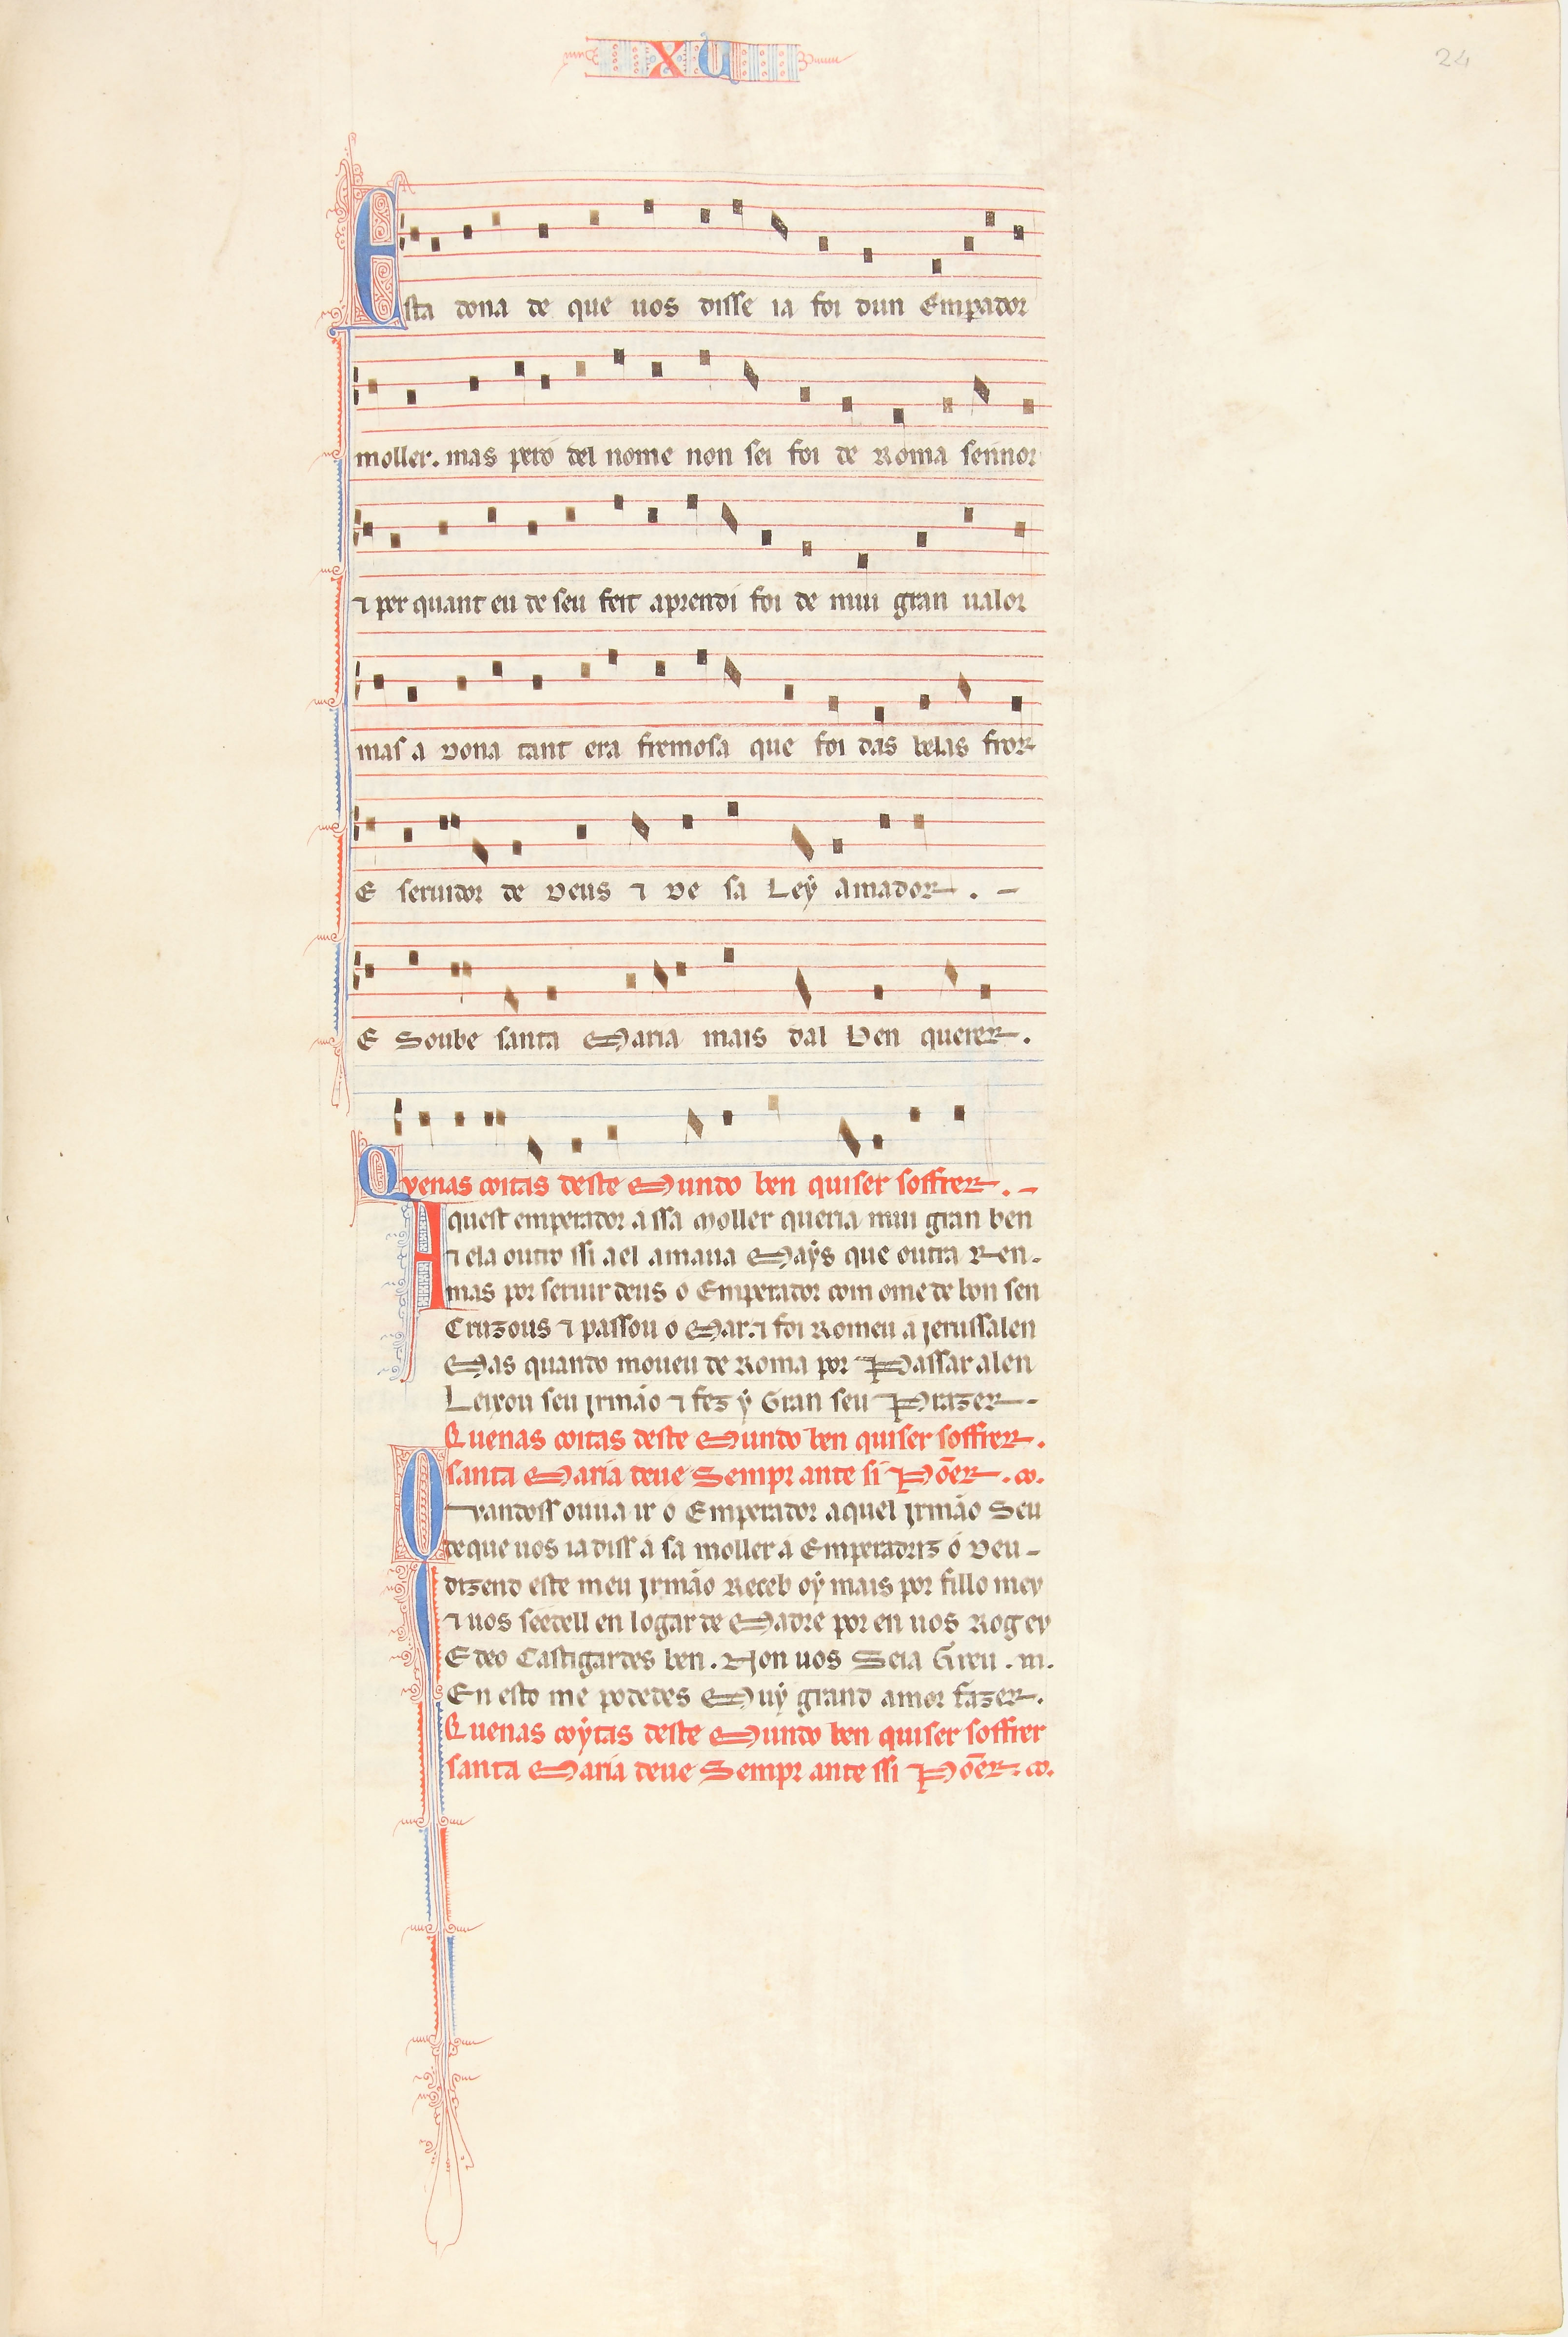 XV
24
Esta dona de que uos disse ia foi dun Emꝑador
moller. mas pero del nome non sei foi de Roma sennor
⁊ per quant eu de seu feit aprendi foi de mui gran ualor
mas a dona tant era fremosa que foi das belas fror
E seruidor de deus ⁊ de sa Leẏ amador.
E Soube santa Maria mais dal ben querer.
Quenas coitas deste Mundo ben quiser soffrer.
Aquest emperador a ssa moller queria mui gran ben
⁊ ela outro ssi a el amaua Maẏs que outra Ren.
mas por seruir deus o Emperador com ome de bon sen
Cruzous ⁊ passou o Mar. ⁊ foi Romeu a jerussalen
Mas quando moueu de Roma por Passar alen
Leixou seu jrmão ⁊ fez ẏ Gran seu Prazer
Quenas coitas deste Mundo ben quiser soffrer.
santa Maria deue Sempr ante si Põer. co.
Quandoss ouua ir o Emperador aquel jrmão Seu
de que uos ia diss a sa moller a Emperadriz o deu
dizend este meu jrmão Receb oẏ mais por fillo mey
⁊ uos seedell en logar de Madre por en uos Rog ey
E deo Castigardes ben. Non uos Seia Greu. m.
En esto me podedes Muẏ grand amor fazer.
Quenas coẏtas deste Mundo ben quiser soffrer
santa Maria deue Sempr ante ssi Põer. co.